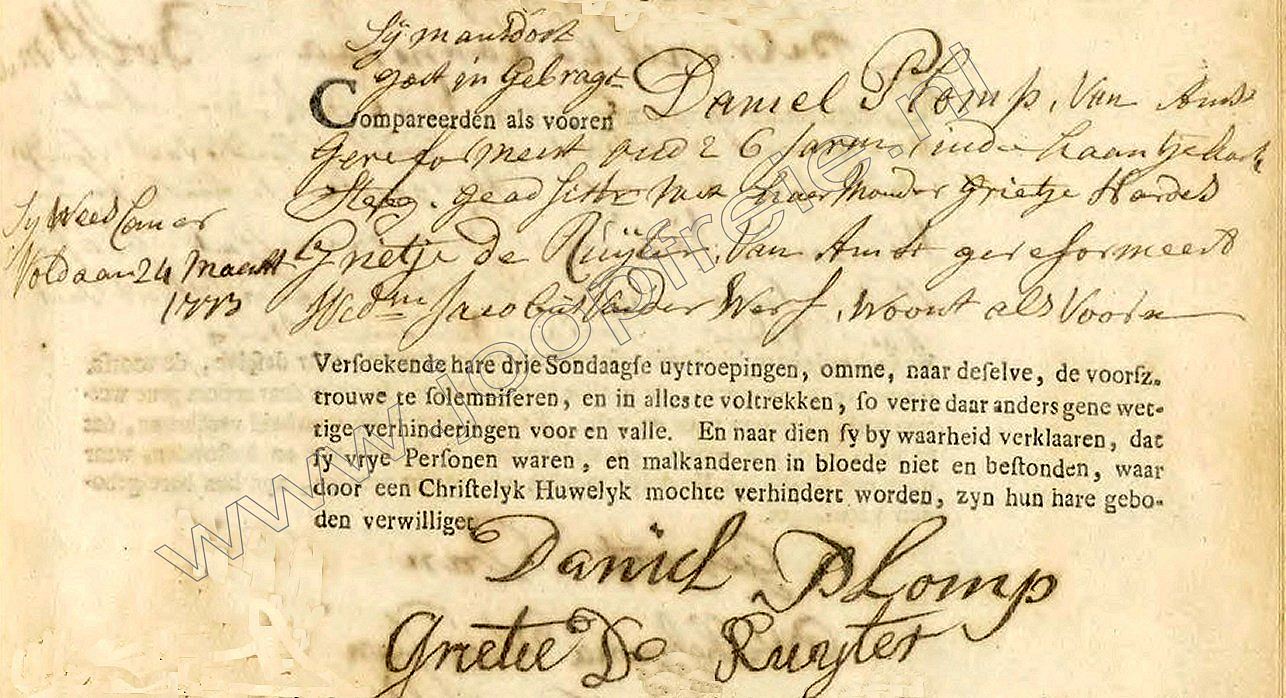 Sy mans doot
goet in Gebragt
Compareerden als vooren Daniel Plomp, van Amst
Gereformeert oud 26 Jaren, inde Haantjehoek
Steeg. geadsitt: met haar Moeder Grietje Hardes
Grietje De Ruijter, van Amst gereformeert
Wed: Jacobus Vander Werf, woont als Voorn
Sy Weescamer
Voldaan 24 Maart
1773
Versoekende hare drie Sondaagse uytroepingen, omme, naar deselve, de voorsz.
trouwe te solemniseren, en in alles te voltrekken, so verre daar anders gene wet-
tige verhinderingen voor en valle. En naar dien sy by waarheid verklaaren, dat
sy vrye Personen waren, en malkanderen in bloede niet en bestonden, waar
door een Christelyk Huwelyk mochte verhindert worden, zyn hun hare gebo-
den verwilliget.
Daniel Plomp
Grietie De Ruyter
www.joopfreie.nl